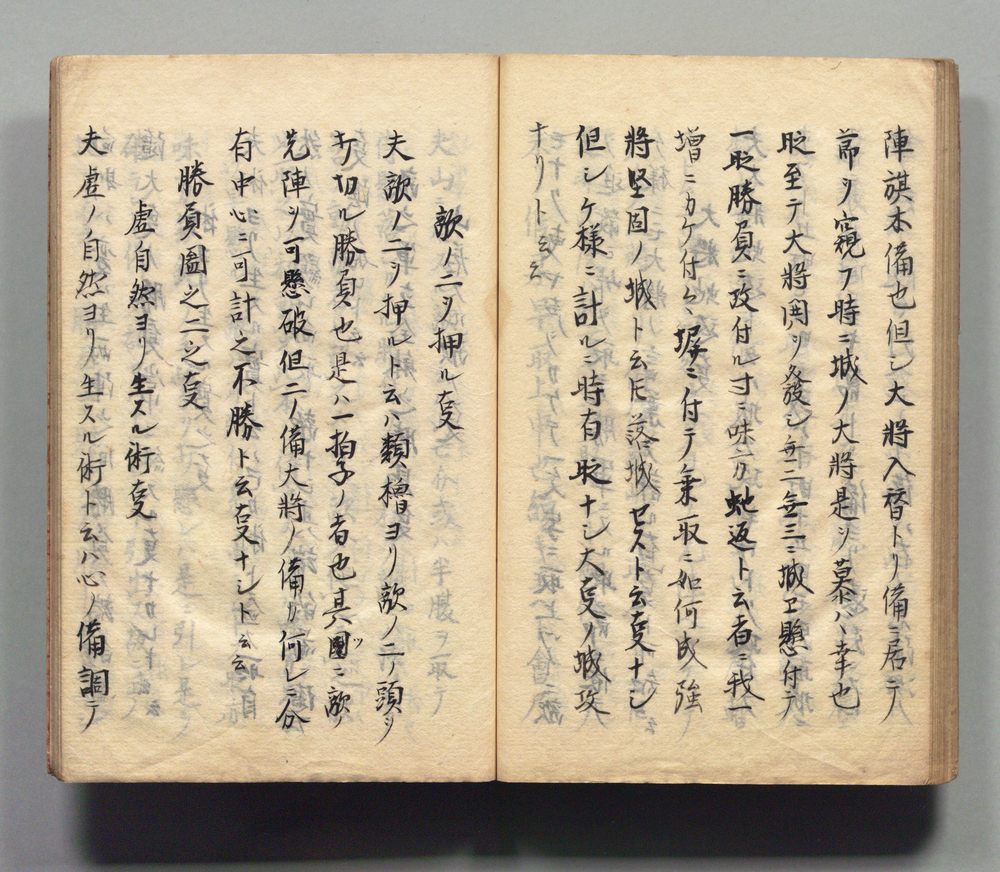 陣旗本備也但シ大將入替トリ備ニ居テ
節ヲ窺フ時ニ城ノ大將是ヲ慕ハヽ幸也
至テ大將鬨ヲ發シ無二無三ニ城エ懸付テ
一 勝負ニ攻付ル寸ニ味方 返ト云者ニ我一
増ニカケ付ケ、塀ニ付テ乗取ニ如何成強
將堅固ノ城ト云𪜈落城セスト云叓ナシ
但シケ様ニ計ルニ時有 ナシ大叓ノ城攻
ナリト云云
敵ノ二ヲ押ル叓
夫敵ノ二ヲ押ルト云ハ類 ヨリ敵ノ二ノ頭ヲ
切ル勝負也是ハ一拍子ノ者也其圖ニ敵ノ
先陣ヲ可懸破但二ノ備大將ノ備カ何レニ分
有中心ニ可計之不勝ト云叓ナシト云云
勝負圖之二之叓
虚自然ヨリ生スル術叓
夫虚ノ自然ヨリ生スル術ト云ハ心ノ備調テ